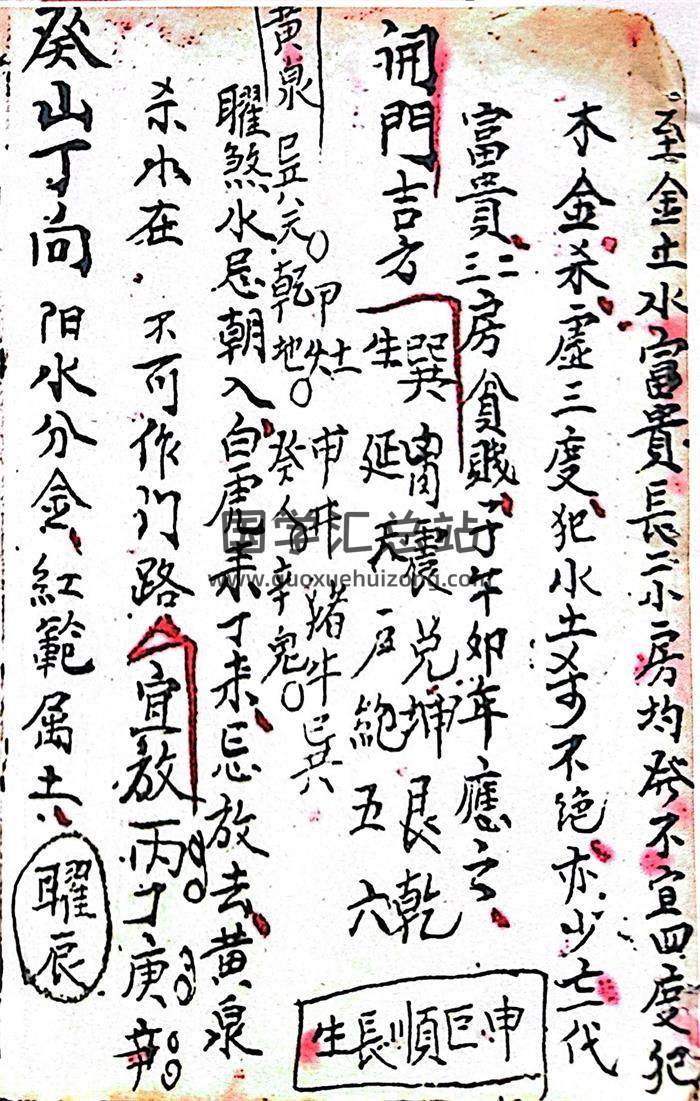 至金土水富貴長二小房均發不宜四度犯
木金杀虛三度犯水土 不絕亦少亡一代
富貴三二房貧賤子午卯年應之
開門吉方
巽 震兌坤艮乾
生延天 絕五六
申巨順長生
黃泉
巳 元乾地
甲
癸 辛鬼
猪牛
曜煞水忌朝入白虎未丁未忌放去黃泉
杀水在 不可作门路 宜放丙丁庚辛
癸山丁向 阳水分金紅範属土
曜辰
国学汇总站
www.guoxuehuizong.com